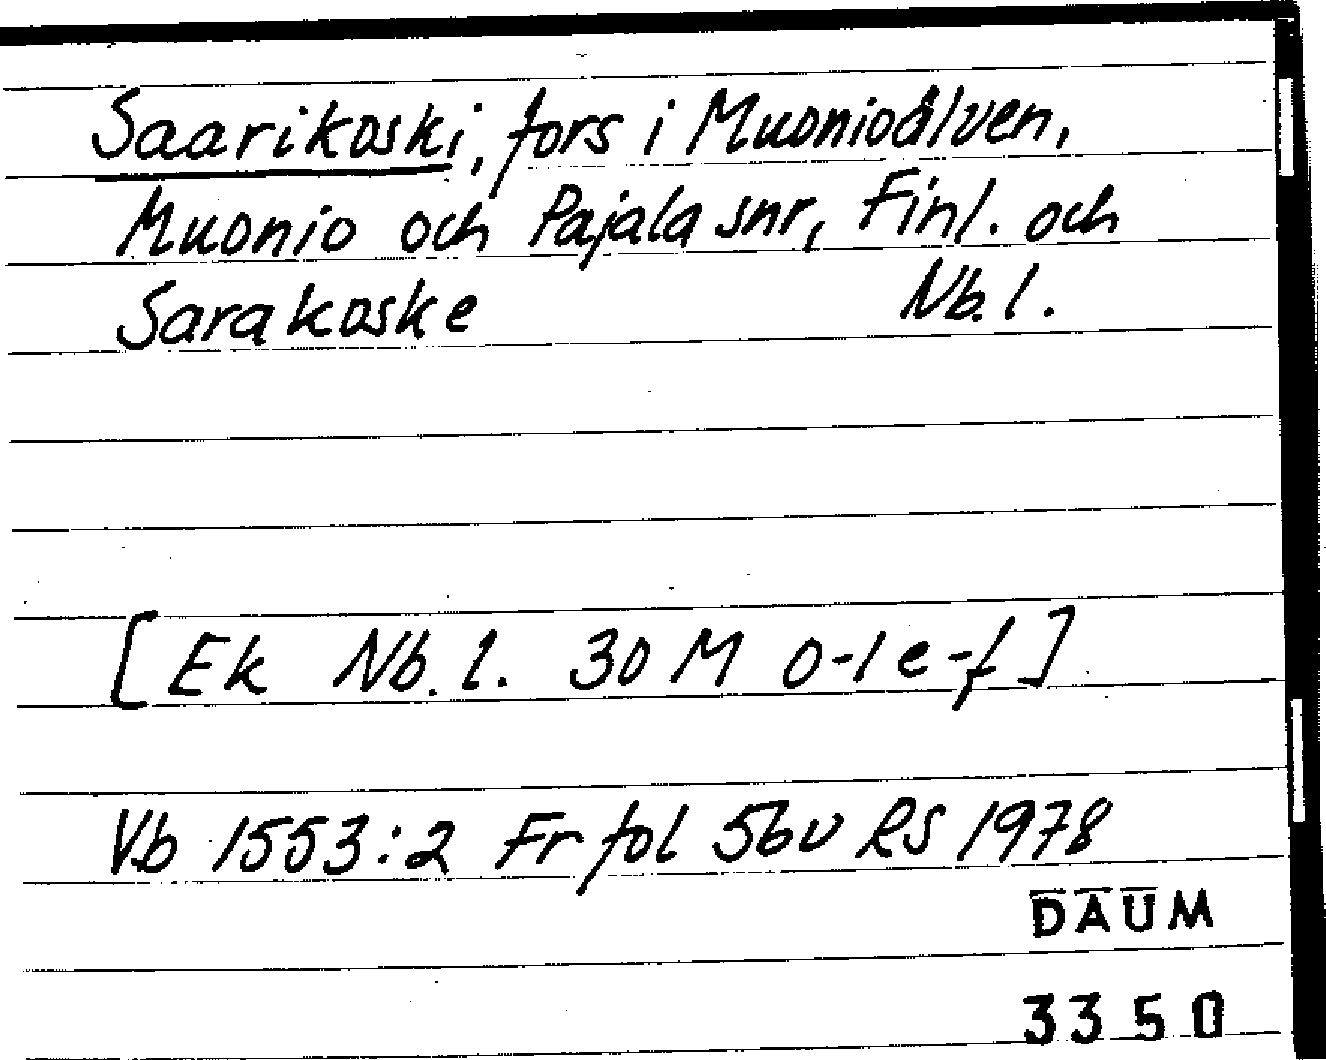 Saarikoski, fors i Muonioälven,
Muonio och Pajala snr, Finl. och
Sarakoske Nb.l.
[Ek Nb.l. 30 M 0-1 e-f]
Vb 1553:2 Fr fol 56v RS 1978
DAUM
3350